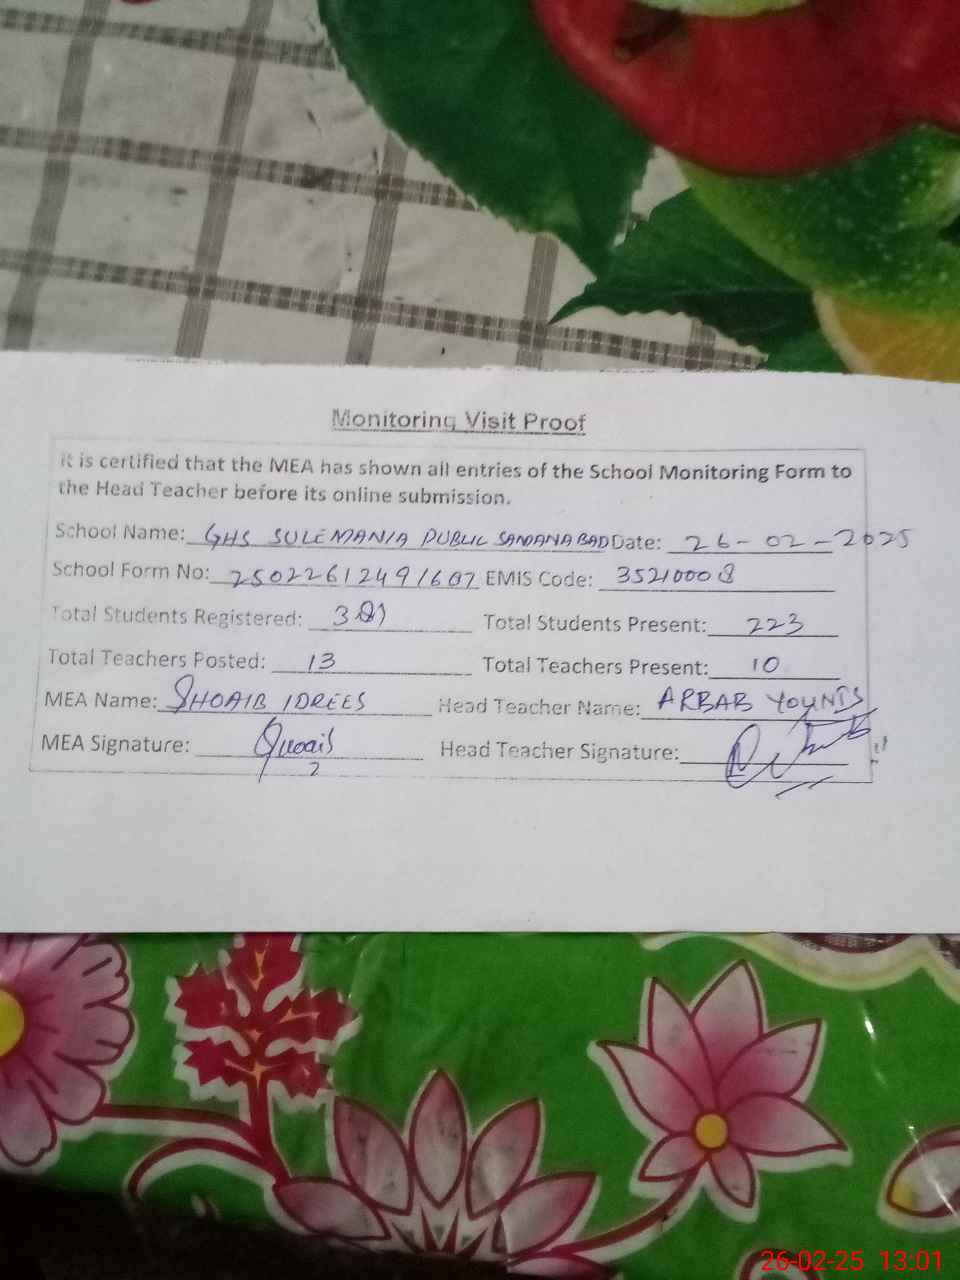 Monitoring Visit Proof
it is certified that the MEA has shown all entries of the School Monitoring Form to
the Head Teacher before its online submission.
School Name: GHS SULEMANIA PUBLIC SAMANABAD Date: 26-02-2025
School Form No: 25022612491607 EMIS Code: 35210008
Total Students Registered: Total Students Present: 223
Total Teachers Posted: 13 Total Teachers Present: 10
MEA Name: SHOAIB IDREES Head Teacher Name: ARBAB YOUNIS
MEA Signature: Head Teacher Signature:
26-02-25 13:01